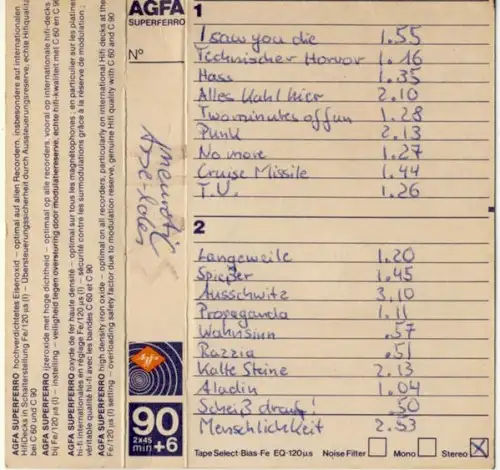 AGFA SUPERFERRO hochverdichtetes Eisenoxid – optimal auf allen Recordern, insbesondere auf internationalen
HifiDecks in Schalterstellung Fe/120 µs (I) – Übersteuerungssicherheit durch Aussteuerungsreserve, echte Hifiqualität
bei C 60 und C 90
AGFA SUPERFERRO ijzeroxide met hoge dichtheid – optimaal op alle recorders, vooral op internationale hifi-decks
Fe/120 µs (I) – instelling – veiligheid tegen oversturing door modulatiereserve, echte hifi-kwaliteit met C 60 en C 90
AGFA SUPERFERRO oxyde de fer haute densité – optimal sur tous les magnétophones; en particulier sur les platines
hifi internationales en réglage Fe/120 µs (I) – sécurité contre les surmodulations grâce à la réserve de modulation;
véritable qualité hi-fi avec les bandes C 60 et C 90
AGFA SUPERFERRO high density iron oxide – optimal on all recorders, particularly on international Hifi decks at the
Fe/120 µs (I) setting – overloading safety factor due to modulation reserve, genuine Hifi quality with C 60 and C 90
AGFA
SUPERFERRO
Nº
Agfa
90
2x45
min +6
1
I saw you die 1.55
Technischer Horror 1.16
Hass 1.35
Alles Kahl hier 2.10
Two minutes of fun 1.28
Punk 2.13
No more 1.27
Cruise Missile 1.44
T.V. 1.26
2
Langeweile 1.20
Spießer 1.45
Ausschwitz 3,10
Propaganda 1.11
Wahnsinn .57
Razzia .51
Kalte Steine 2.13
Aladin 1.04
Scheiß drauf! .50
Menschlichkeit 2.53
Tape Select-Bias-Fe EQ-120µs Noise Filter Mono Stereo